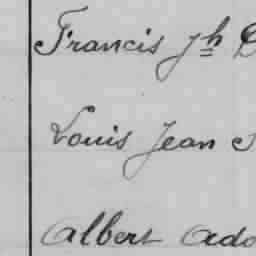 Francis Jh
Louis Jean
Albert Ado